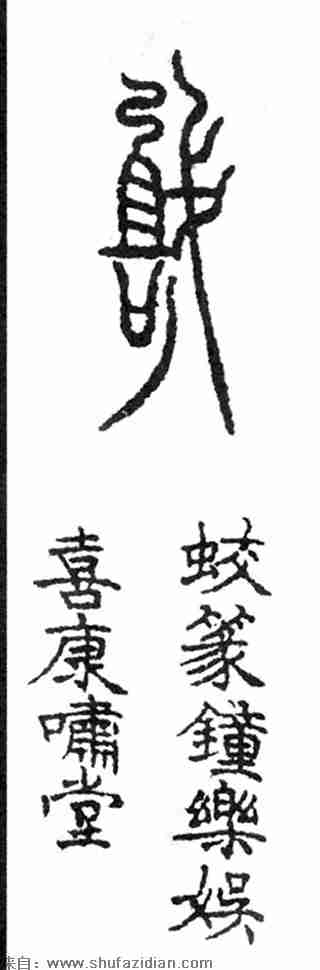 蛟篆鐘樂娛
喜康嘯堂
来自：www.shufazidian.com